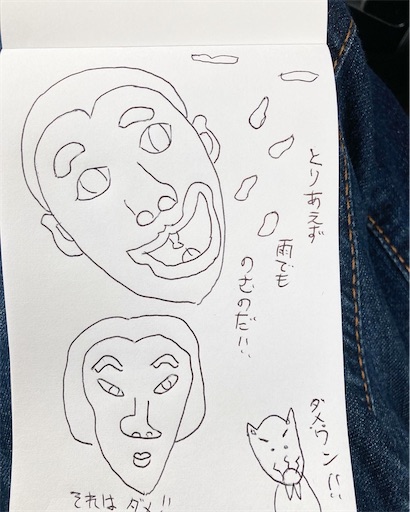 とりあえず
雨でも
のむのだ!!
ダメワン!!
それは ダメ!!